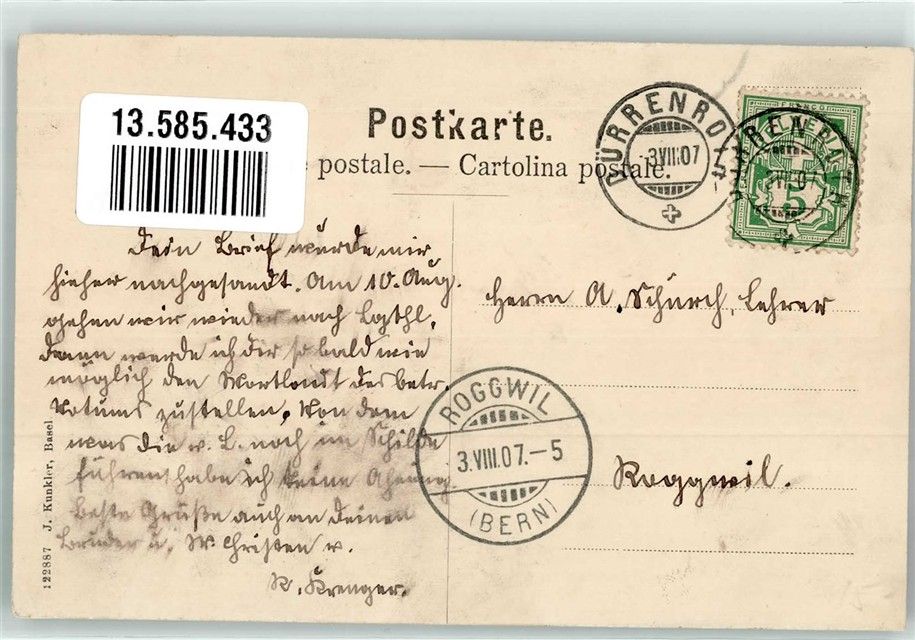 13.585.433
Postkarte.
e postale. — Cartolina postale.
DÜRRENROTH
3.VIII.07
FRANCO
5
DÜRRENROTH
VIII.07
Dein Brief wurde mir
hieher nachgesandt. Am 10. Aug.
gehen wir wieder nach Lgthl,
dann werde ich dir so bald wie
möglich den Wortlaut des betr.
Votums zustellen. Von dem
was die v. L. noch im Schilde
führen habe ich keine Ahnung
beste Grüße auch an deinen
Bruder u. W. Christen v.
R. Krenger.
Herrn A. Schürch, Lehrer
Roggwil.
ROGGWIL
3.VIII.07.-5
(BERN)
122887 J. Kunkler, Basel